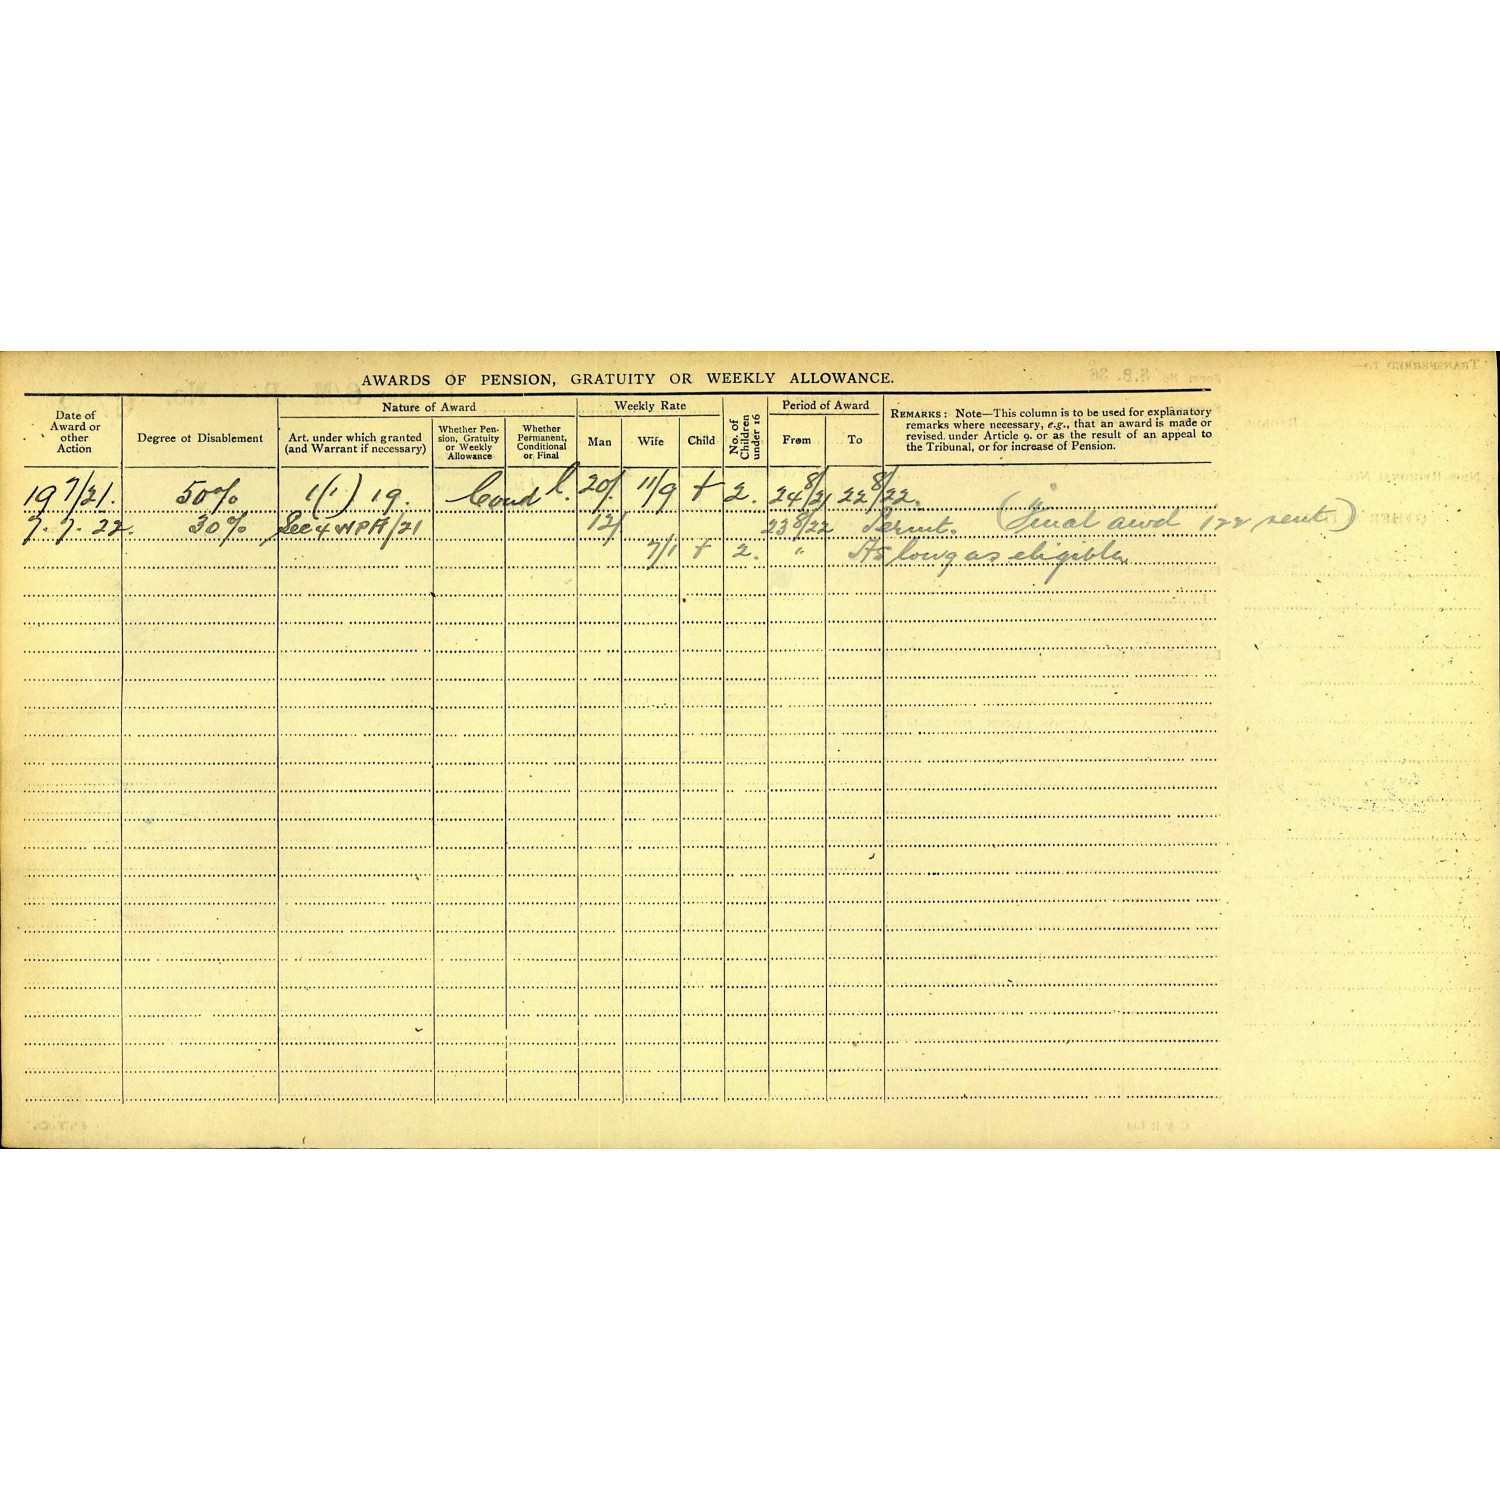 AWARDS OF PENSION, GRATUITY OR WEEKLY ALLOWANCE.
Date of Award or other Action
Degree of Disablement
Nature of Award
Art. under which granted (and Warrant if necessary)
Whether Pension, Gratuity or Weekly Allowance
Whether Permanent, Conditional or Final
Weekly Rate
Man Wife Child
No. of Children under 16
Period of Award
From To
REMARKS: Note—This column is to be used for explanatory
remarks where necessary, e.g., that an award is made or
revised under Article 9. or as the result of an appeal to
the Tribunal, or for increase of Pension.
19 7/21. 50% 1(1) 19. Cond l. 20/. 11/9 + 2. 24 8/21 22 8/22.
7.7.22. 30% Sec 4 WPA/21 12/ 23 8/22 Permt. (Final awd 122 sent)
7/1 + 2. " As long as eligible